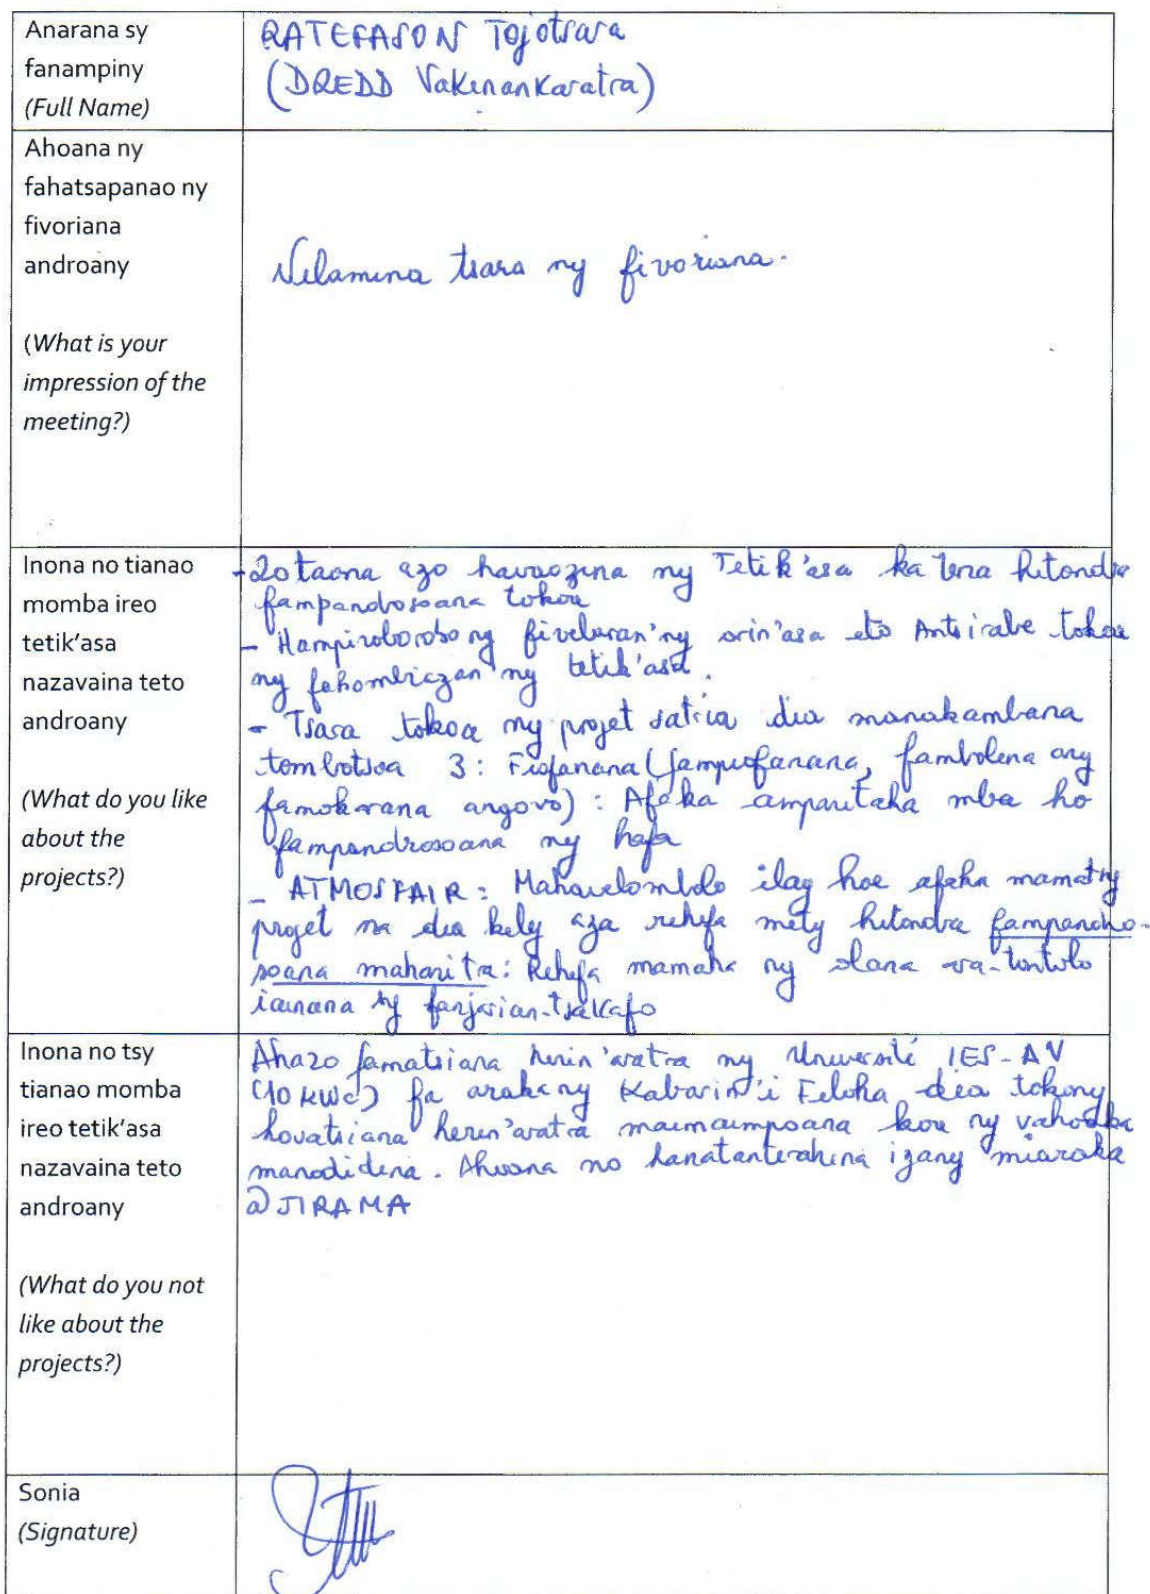 Anarana sy
fanampiny
(Full Name)
RATEFASON Tojotsara
(DREDD Vakinankaratra)
Ahoana ny
fahatsapanao ny
fivoriana
androany
(What is your
impression of the
meeting?)
Nilamina tsara ny fivoriana.
Inona no tianao
momba ireo
tetik'asa
nazavaina teto
androany
(What do you like
about the
projects?)
- 20 taona azo havaozina ny Tetik'asa ka tena hitondra
fampandrosoana tokoa
- Hampiroborobo ny fivelaran'ny orin'asa eto Antsirabe tokoa
ny fahombiazan'ny tetik'asa.
- Tsara tokoa ny projet satria dia manakambana
tombotsoa 3: Fiofanana (fampiofanana, fambolena ary
famokarana angovo) : Afaka ampanitaha mba ho
fampandrosoana ny hafa
- ATMOSFAIR : Mahavelombolo ilay hoe afaka mamatsy
projet na dia kely aza rehefa mety hitondra fampandro-
soana maharitra: Rehefa mamaha ny olana tontolo
iainana sy fanjarian-tsakafo
Inona no tsy
tianao momba
ireo tetik'asa
nazavaina teto
androany
(What do you not
like about the
projects?)
Ahazo famatsiana herin'aratra ny Université IES-AV
(10 KWc) fa araka ny Kabarin'i Feloha dia tokony
hovatsiana herin'aratra maimaimpoana koa ny vahoaka
manodidina. Ahoana no hanatanterahina izany miaraka
@ JIRAMA
Sonia
(Signature)